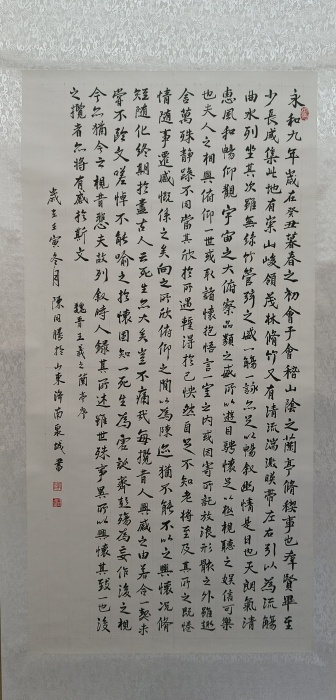 永和九年歲在癸丑暮春之初會于會稽山陰之蘭亭脩稧事也群賢畢至
少長咸集此地有崇山峻領茂林脩竹又有清流湍激暎帶左右引以為流觴
曲水列坐其次雖無絲竹管弦之盛一觴一詠亦足以暢敘幽情是日也天朗氣清
惠風和暢仰觀宇宙之大俯察品類之盛所以遊目騁懷足以極視聽之娛信可樂
也夫人之相與俯仰一世或取諸懷抱悟言一室之內或因寄所託放浪形骸之外雖趣
舍萬殊靜躁不同當其欣於所遇蹔得於己怏然自足不知老將至及其所之既惓
情隨事遷感慨係之矣向之所欣俯仰之閒以為陳迹猶不能不以之興懷況脩
短隨化終期於盡古人云死生亦大矣豈不痛哉每攬昔人興感之由若合一契未
嘗不臨文嗟悼不能喻之於懷固知一死生為虛誕齊彭殤為妄作後之視
今亦猶今之視昔悲夫故列敘時人錄其所述雖世殊事異所以興懷其致一也後
之攬者亦將有感於斯文
魏晉王羲之蘭亭序
歲在壬寅冬月陳同勝於山東濟南泉城書